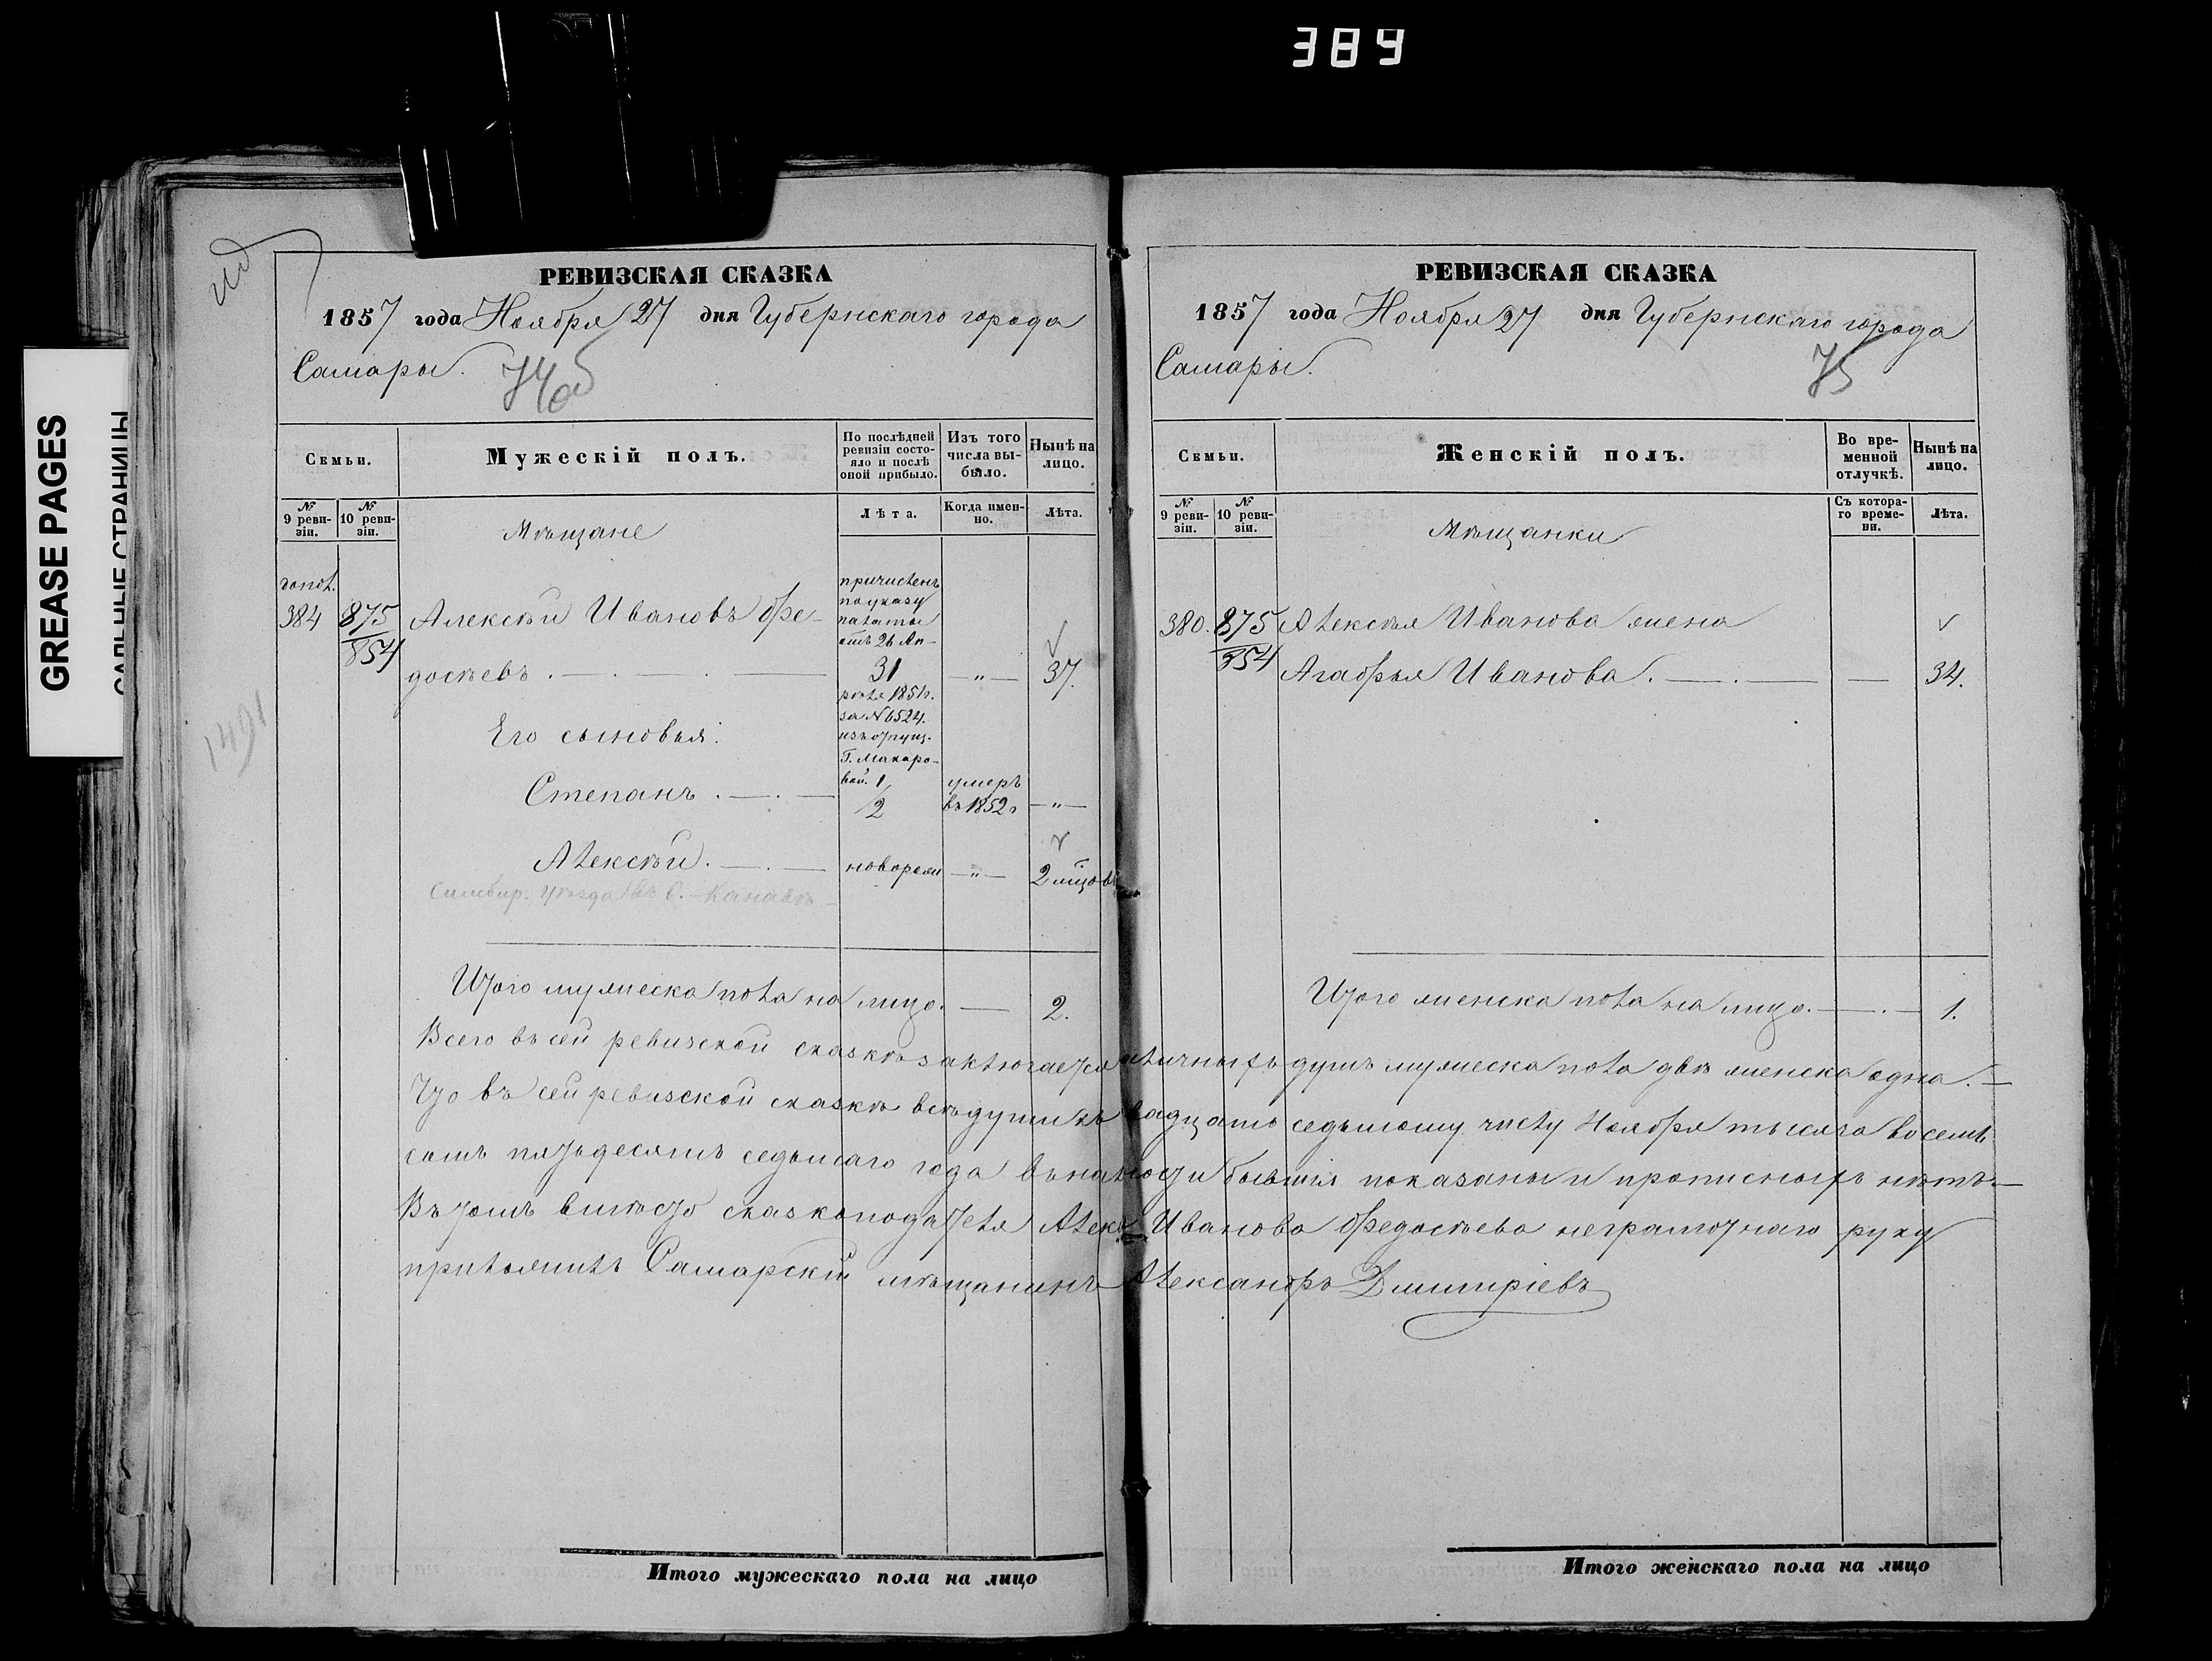 389
GREASE PAGES
САЛЬНЫЕ СТРАНИЦЫ
1491
РЕВИЗСКАЯ СКАЗКА
1857 года Ноября 27 дня Губернскаго города
Самары.
74об
Семьи.
Мужескій полъ.
По послѣдней ревизіи состояло и послѣ оной прибыло.
Изъ того числа выбыло.
Нынѣ на лицо.
№ 9 ревизіи.
№ 10 ревизіи.
Мѣщане
Лѣта.
Когда именно.
Лѣта.
384
875
854
Алексѣй Ивановъ Ѳе-
досѣевъ.
причисленъ
по указу
палаты
отъ 26 Ап-
31
рѣля 1851г.
за № 6524.
изъ отпущ.
Г. Макаро-
вой.
— " —
37.
Его сыновья:
Степанъ.
1/2
умеръ
въ 1852г
— " —
Алексѣй.
новорожд
— " —
2 мѣцовъ
Симбир. уѣзда въ с. Канавѣ
Итого мужеска пола на лицо. — 2.
РЕВИЗСКАЯ СКАЗКА
1857 года Ноября 27 дня Губернскаго города
Самары.
75
Семьи.
Женскій полъ.
Во временной отлучкѣ.
Нынѣ на лицо.
№ 9 ревизіи.
№ 10 ревизіи.
Мѣщанки
Съ котораго времени.
Лѣта.
380. 875
854
Алексѣя Иванова жена
Агафья Иванова. — 34.
Итого женска пола на лицо. — 1.
Всего въ сей ревизской сказкѣ заключается наличныхъ душъ мужеска пола двѣ женска одна. —
Что въ сей ревизской сказкѣ всѣ души къ двадцать седьмому числу Ноября тысяча восемь
сотъ пятьдесятъ седьмаго года въ наличности бывшія показаны и прописныхъ нѣтъ. —
Въ томъ вмѣсто сказкоподателя Алексѣя Иванова Ѳедосѣева неграмотнаго руку
приложилъ Самарскій мѣщанинъ Александръ Дмитріевъ
Итого мужескаго пола на лицо
Итого женскаго пола на лицо